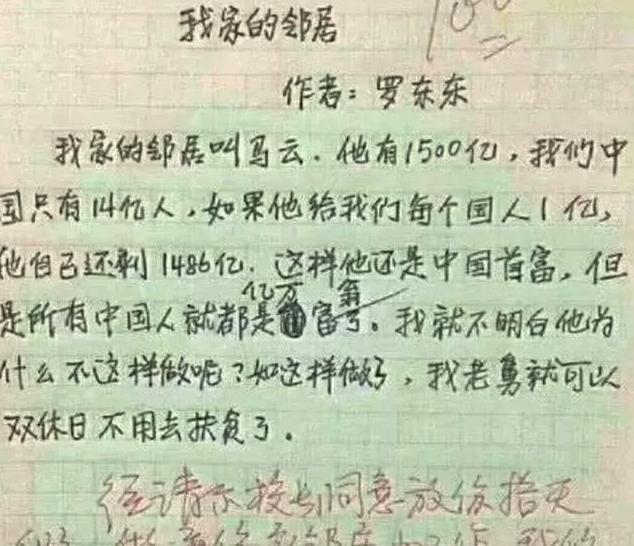 我家的邻居
100
作者：罗东东
我家的邻居叫马云．他有1500亿，我们中
国只有14亿人，如果他给我们每个国人1亿，
他自己还剩1486亿．这样他还是中国首富，但
是所有中国人就都是亿万富翁了。我就不明白他为
什么不这样做呢？如这样做了，我老舅就可以
双休日不用去扶贫了。
经请示校长同意放你